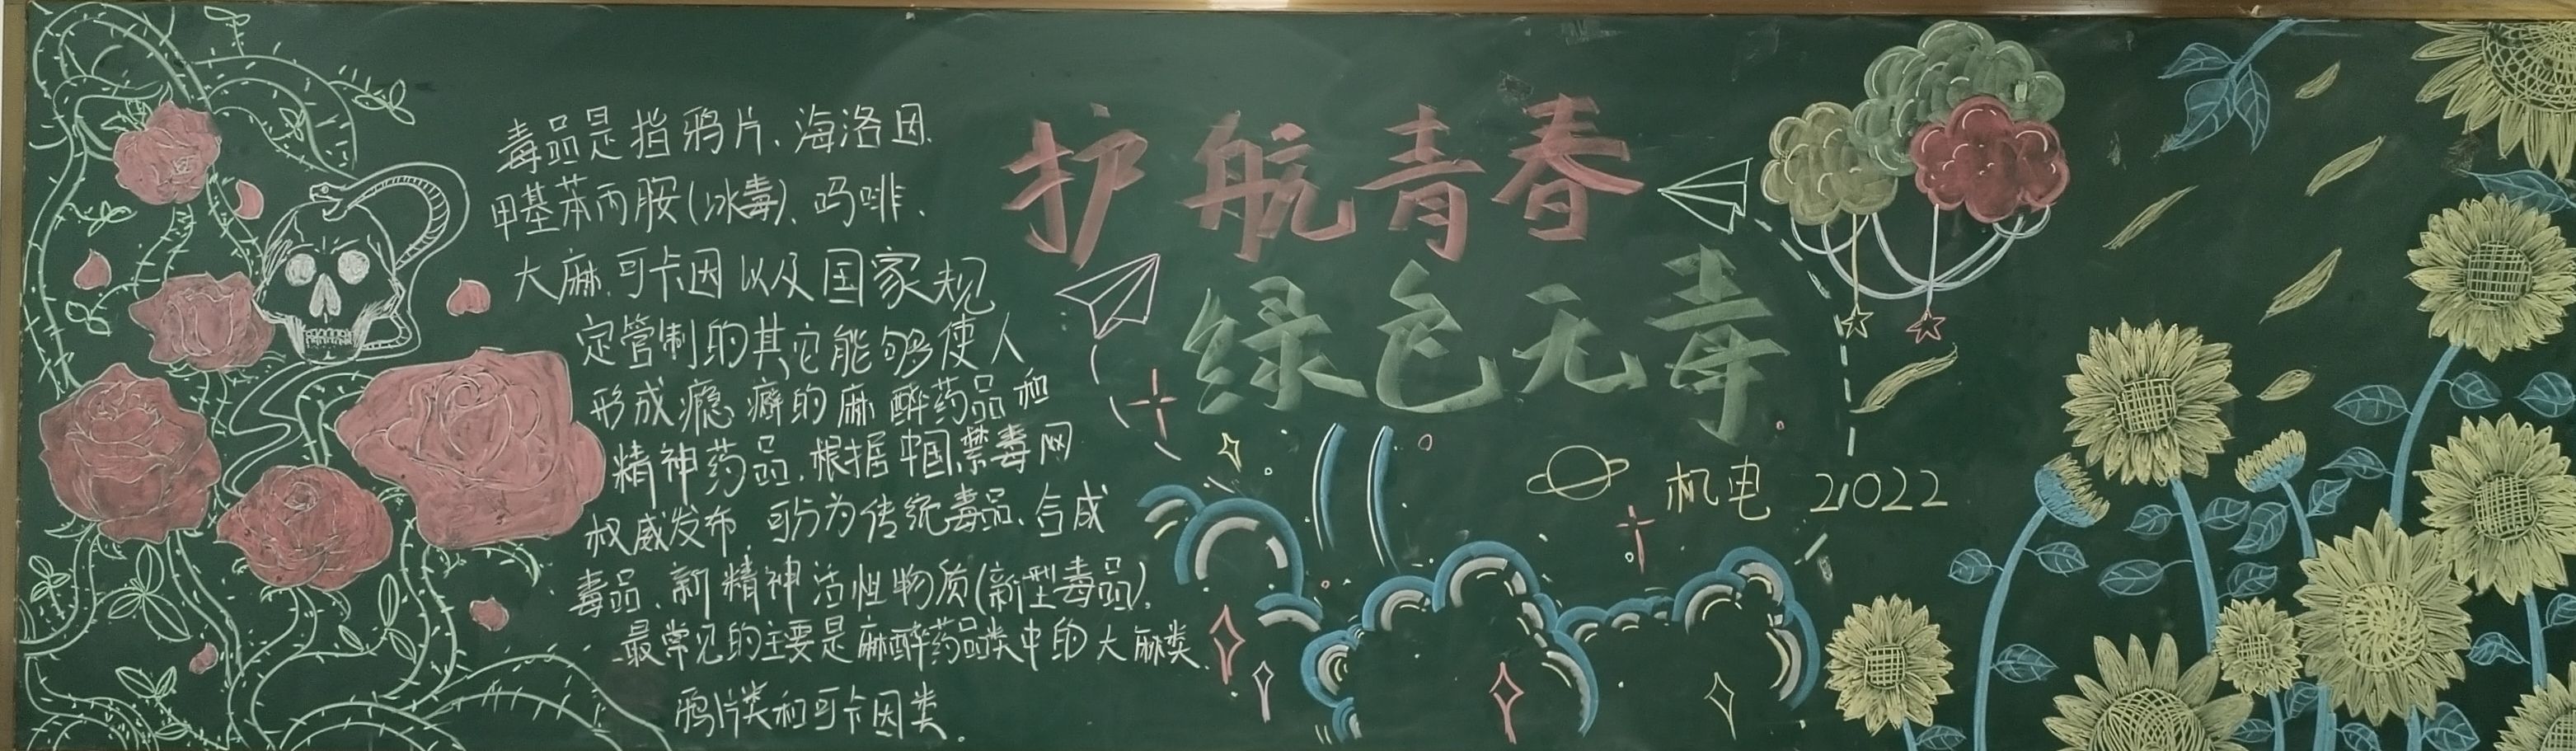 毒品是指鸦片、海洛因、
甲基苯丙胺(冰毒)、吗啡、
大麻、可卡因以及国家规
定管制的其它能够使人
形成瘾癖的麻醉药品和
精神药品。根据中国禁毒网
权威发布,可分为传统毒品、合成
毒品、新精神活性物质(新型毒品)。
最常见的主要是麻醉药品类中的大麻类、
鸦片类和可卡因类。
护航青春
绿色无毒
机电 2022